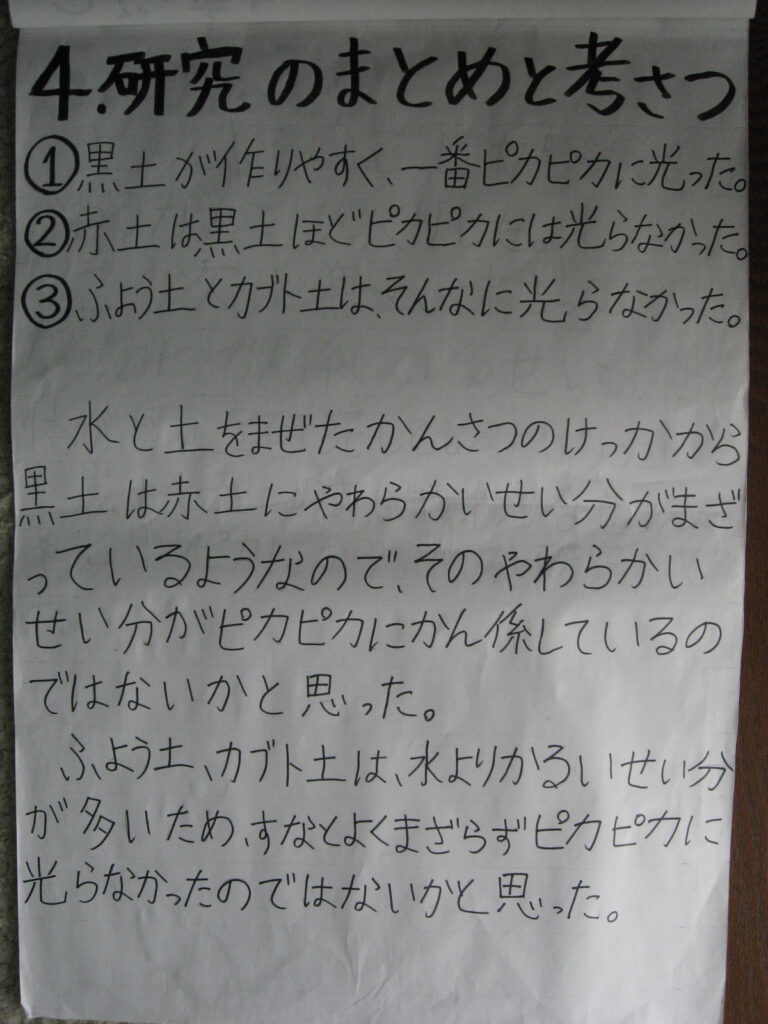 4.研究のまとめと考さつ
①黒土が作りやすく、一番ピカピカに光った。
②赤土は黒土ほどピカピカには光らなかった。
③ふよう土とカブト土は、そんなに光らなかった。
水と土をまぜたかんさつのけっかから
黒土は赤土にやわらかいせい分がまざ
っているようなので、そのやわらかい
せい分がピカピカにかん係しているの
ではないかと思った。
ふよう土、カブト土は、水よりかるいせい分
が多いため、すなとよくまざらずピカピカに
光らなかったのではないかと思った。